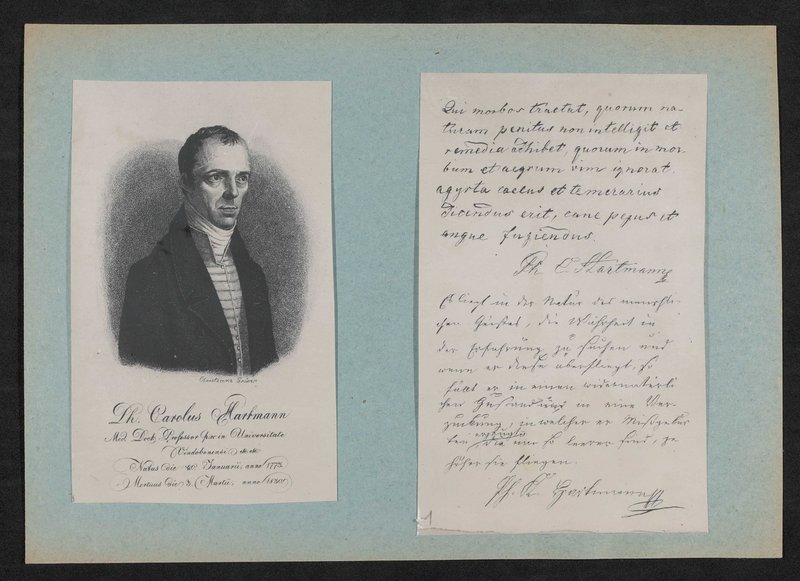 Ph. Carolus Hartmann
Med. Doct. Professor p. o. in Universitate
Vindobonensi etc. etc.
Natus die 20 Januarii, anno 1773
Mortuus die 3. Martii, anno 1830
Qui morbos tractat, quorum na-
turam penitus non intelligit et
remedia adhibet, quorum in mor-
bum et aegrum vim ignorat,
agyrta caecus et temerarius
dicendus erit, cane pejus et
angue fugiendus.
Ph C Hartmann
Es liegt in der Natur des menschli-
chen Geistes, die Wahrheit in
der Erfahrung zu suchen und
wenn er diese überfliegt, so
fällt er in einen widernatürli
chen Zustand und in eine Ver-
zuckung, in welcher er Missgebur
ten erzeugt die um so leerer sind, je
höher sie fliegen.
Ph. K. Hartmann
1